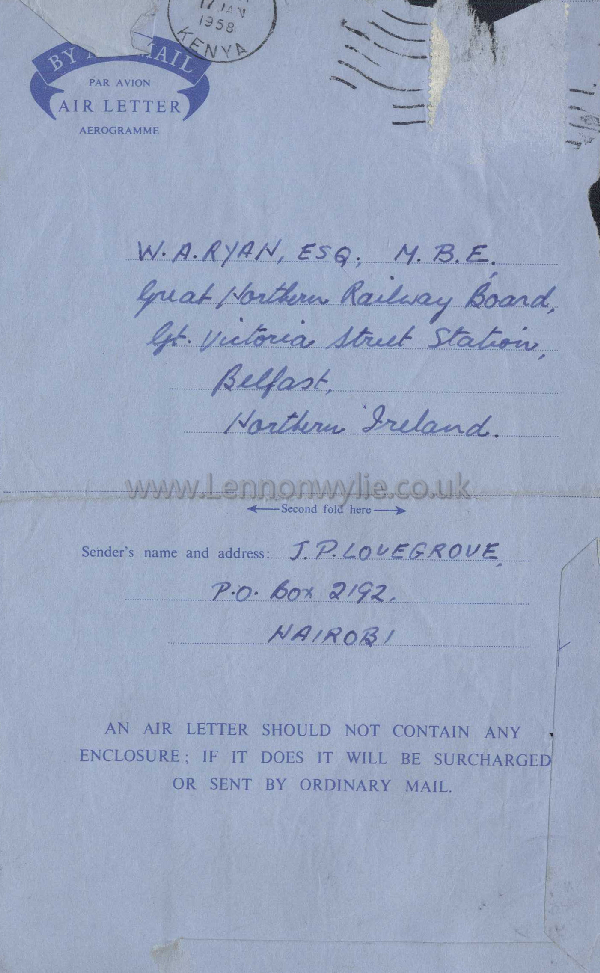 17 JAN
1958
KENYA
BY AIR MAIL
PAR AVION
AIR LETTER
AEROGRAMME
W. A. RYAN, ESQ., M.B.E.
Great Northern Railway Board,
Gt. Victoria Street Station,
Belfast,
Northern Ireland.
www.Lennonwylie.co.uk
Second fold here
Sender's name and address: J. P. LOVEGROVE,
P.O. Box 2192,
NAIROBI
AN AIR LETTER SHOULD NOT CONTAIN ANY
ENCLOSURE; IF IT DOES IT WILL BE SURCHARGED
OR SENT BY ORDINARY MAIL.